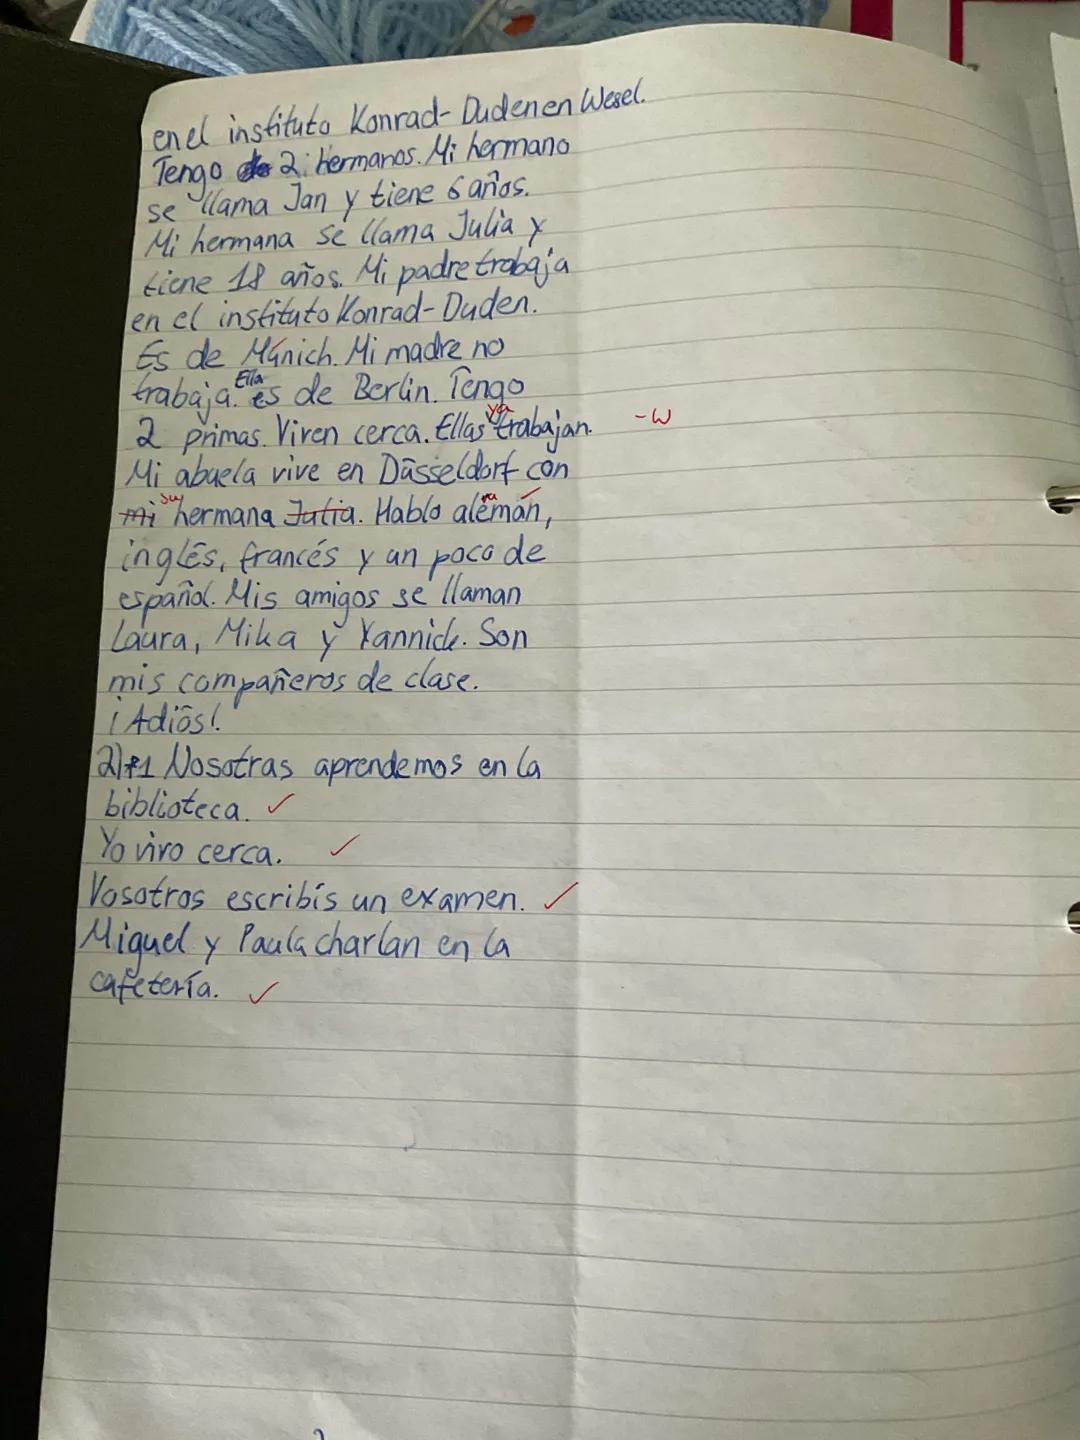 en el instituto Konrad-Duden en Wesel.
Tengo 2 hermanos. Mi hermano
se llama Jan y tiene 6 años.
Mi hermana se llama Julia y
tiene 18 años. Mi padre trabaja
en el instituto Konrad-Duden.
Es de Múnich. Mi madre no
Ella
trabaja. es de Berlin. Tengo
ya
2 primas. Viven cerca. Ellas trabajan. -W
Mi abuela vive en Düsseldorf con
su
mi hermana Jutta. Hablo alemán,
inglés, francés y un poco de
español. Mis amigos se llaman
Laura, Mika y Yannick. Son
mis compañeros de clase.
¡Adiós!
2) 1 Nosotras aprendemos en la
biblioteca. ✓
Yo vivo cerca. ✓
Vosotros escribís un examen. ✓
Miguel y Paula charlan en la
cafetería. ✓